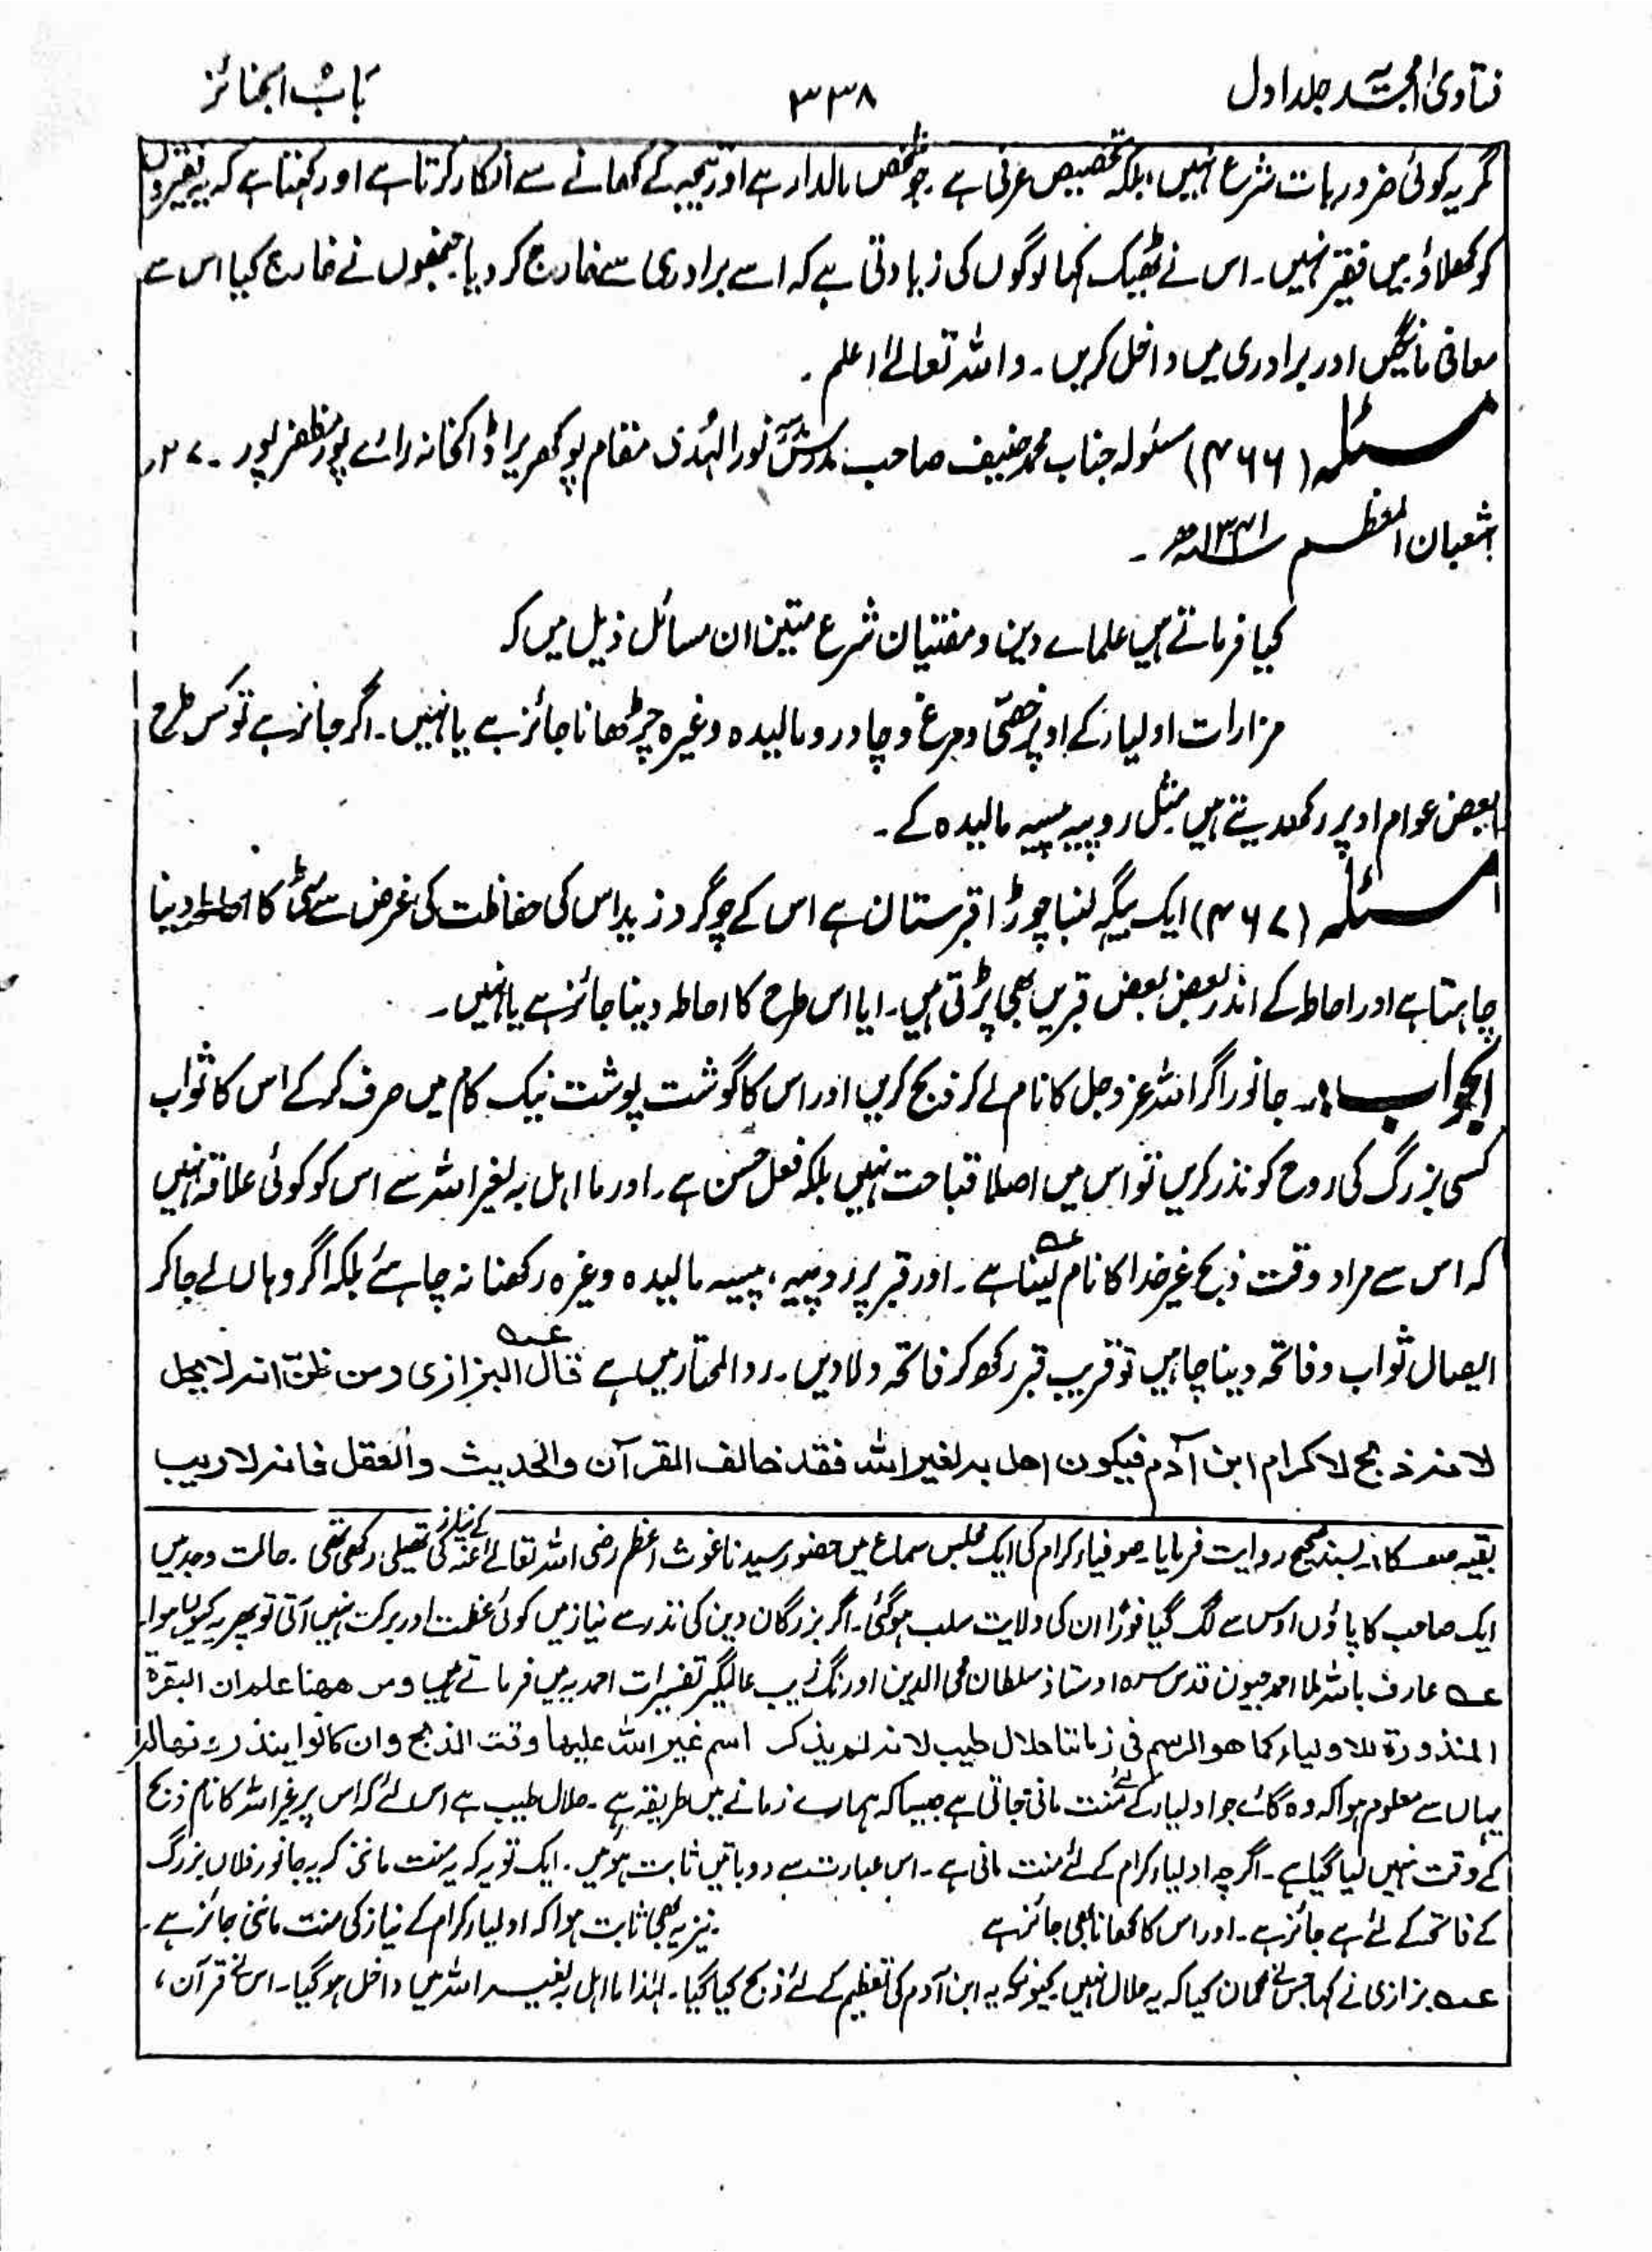 فتاویٰ امجدیہ جلد اول ۳۳۸ باب الجنائز
مگر یہ کوئی ضروریات شرع نہیں، بلکہ تخصیص عرفی ہے۔ جو شخص مالدار ہے اور تیجہ کے کھانے سے انکار کرتا ہے اور کہتا ہے کہ یہ فقیروں
کو کھلاؤ میں فقیر نہیں۔ اس نے ٹھیک کہا لوگوں کی زیادتی ہے کہ اسے برادری سے خارج کر دیا جنھوں نے خارج کیا اس سے
معافی مانگیں اور برادری میں داخل کریں۔ واللہ تعالےٰ اعلم۔
مسئلہ (۴۶۶) مسئولہ جناب محمد حنیف صاحب مدرسہ نور الہدیٰ مقام پوکھریرا ڈاکخانہ رائے پور مظفر پور۔ ۲۷ر
شعبان المعظم ۱۳۴۱ھ۔
کیا فرماتے ہیں علمائے دین و مفتیان شرع متین ان مسائل ذیل میں کہ
مزارات اولیاء کے اوپر خصّی و مرغ و چادر و مالیدہ وغیرہ چڑھانا جائز ہے یا نہیں۔ اگر جائز ہے تو کس طرح
بعض عوام اوپر رکھدیتے ہیں مثل روپیہ پیسہ مالیدہ کے۔
مسئلہ (۴۶۷) ایک بیگہ لنبا چوڑا قبرستان ہے اس کے چوگرد زید اس کی حفاظت کی غرض سے مٹی کا احاطہ دینا
چاہتا ہے اور احاطہ کے اندر بعض بعض قبریں بھی پڑتی ہیں۔ ایا اس طرح کا احاطہ دینا جائز ہے یا نہیں۔
الجواب:۔ جانور اگر اللہ عزوجل کا نام لے کر ذبح کریں اور اس کا گوشت پوشت نیک کام میں صرف کر کے اس کا ثواب
کسی بزرگ کی روح کو نذر کریں تو اس میں اصلا قباحت نہیں بلکہ فعل حسن ہے۔ اور ما اہل بہ لغیر اللہ سے اس کو کوئی علاقہ نہیں
کہ اس سے مراد وقت ذبح غیر خدا کا نام لینا عہ ہے۔ اور قبر پر روپیہ، پیسہ مالیدہ وغیرہ رکھنا نہ چاہئے بلکہ اگر وہاں لے جا کر
ایصال ثواب و فاتحہ دینا چاہیں تو قریب قبر رکھ کر فاتحہ دلا دیں۔ رد المحتار میں ہے قال عہ البزازی ومن ظن انہ لا یحل
لانہ ذبح لاکرام ابن آدم فیکون اھل بہ لغیر اللہ فقد خالف القرآن والحدیث والعقل فانہ لا ریب
بقیہ صفحہ کا:۔ بسند صحیح روایت فرمایا۔ صوفیاء کرام کی ایک مجلس سماع میں حضور سیدنا غوث اعظم رضی اللہ تعالےٰ عنہ کے نیاز کی تھیلی رکھی تھی۔ حالت وجد میں
ایک صاحب کا پاؤں اوس سے لگ گیا فوراً ان کی ولایت سلب ہو گئی۔ اگر بزرگان دین کی نذر سے نیاز میں کوئی عظمت اور برکت نہیں آتی تو پھر یہ کیوں ہوا۔
عہ عارف باللہ ملا احمد جیون قدس سرہ اوستاذ سلطان محی الدین اورنگ زیب عالمگیر تفسیرات احمدیہ میں فرماتے ہیں ومن ھھنا علم ان البقرۃ
المنذورۃ للاولیاء کما ھو الرسم فی زماننا حلال طیب لانہ لم یذکر اسم غیر اللہ علیھا وقت الذبح وان کانوا ینذرونھا لہ
یہاں سے معلوم ہوا کہ وہ گائے جو اولیاء کے لئے منت مانی جاتی ہے جیسا کہ ہمارے زمانے میں طریقہ ہے۔ حلال طیب ہے اس لئے کہ اس پر غیر اللہ کا نام ذبح
کے وقت نہیں لیا گیا ہے۔ اگر چہ اولیاء کرام کے لئے منت مانی ہے۔ اس عبارت سے دو باتیں ثابت ہوئیں۔ ایک تو یہ کہ یہ منت ماننی کہ یہ جانور فلاں بزرگ
کے فاتحہ کے لئے ہے جائز ہے۔ اور اس کا کھانا بھی جائز ہے نیز یہ بھی ثابت ہوا کہ اولیاء کرام کے نیاز کی منت ماننی جائز ہے۔
عہ بزازی نے کہا جس نے گمان کیا کہ یہ حلال نہیں کیونکہ یہ ابن آدم کی تعظیم کے لئے ذبح کیا گیا۔ لہٰذا ما اہل بہ لغیر اللہ میں داخل ہو گیا۔ اس نے قرآن،